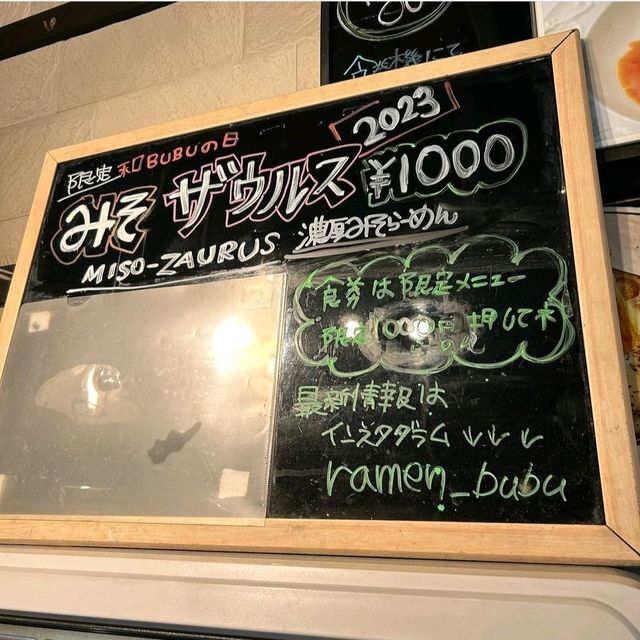 食券機にて
限定 和BUBUの日
2023
みそ ザウルス ¥1000
MISO-ZAURUS 濃厚みそらーめん
食券は限定メニュー
限定1000円 押して
最新情報は
インスタグラム ↓↓↓
ramen_bubu